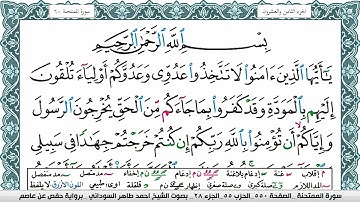 الجزء الثامن والعشرون
سورة الممتحنة ٦٠
بِسْمِ ٱللَّهِ ٱلرَّحْمَٰنِ ٱلرَّحِيمِ
يَٰٓأَيُّهَا ٱلَّذِينَ ءَامَنُوا۟ لَا تَتَّخِذُوا۟ عَدُوِّى وَعَدُوَّكُمْ أَوْلِيَآءَ تُلْقُونَ
إِلَيْهِم بِٱلْمَوَدَّةِ وَقَدْ كَفَرُوا۟ بِمَا جَآءَكُم مِّنَ ٱلْحَقِّ يُخْرِجُونَ ٱلرَّسُولَ
وَإِيَّاكُمْ أَن تُؤْمِنُوا۟ بِٱللَّهِ رَبِّكُمْ إِن كُنتُمْ خَرَجْتُمْ جِهَٰدًا فِى سَبِيلِى
سورة الممتحنة - الصفحة ٥٥٠ - الحزب ٥٥ - الجزء ٢٨ - بصوت الشيخ احمد طاهر السوداني - برواية حفص عن عاصم